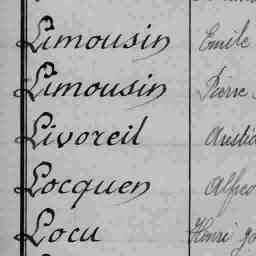 Limousin Emile
Limousin Pierre
Livoreil
Locquen
Locu Henri